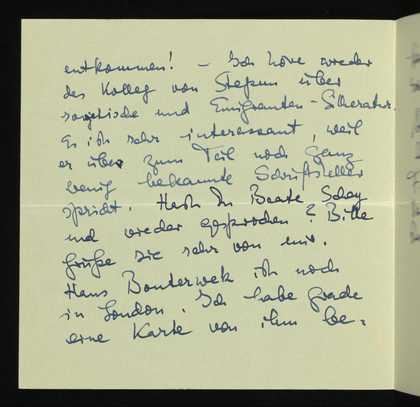 entkommen! – Ich höre wieder
das Kolleg von Stepun über
sowjetische und Emigranten-Literatur.
Es ist sehr interessant, weil
er über zum Teil noch ganz
wenig bekannte Schriftsteller
spricht. Hast Du Beate
mal wieder gesprochen? Bitte
grüße sie sehr von mir.
Hans Bouterwek ist noch
in London. Ich habe grade
eine Karte von ihm be-